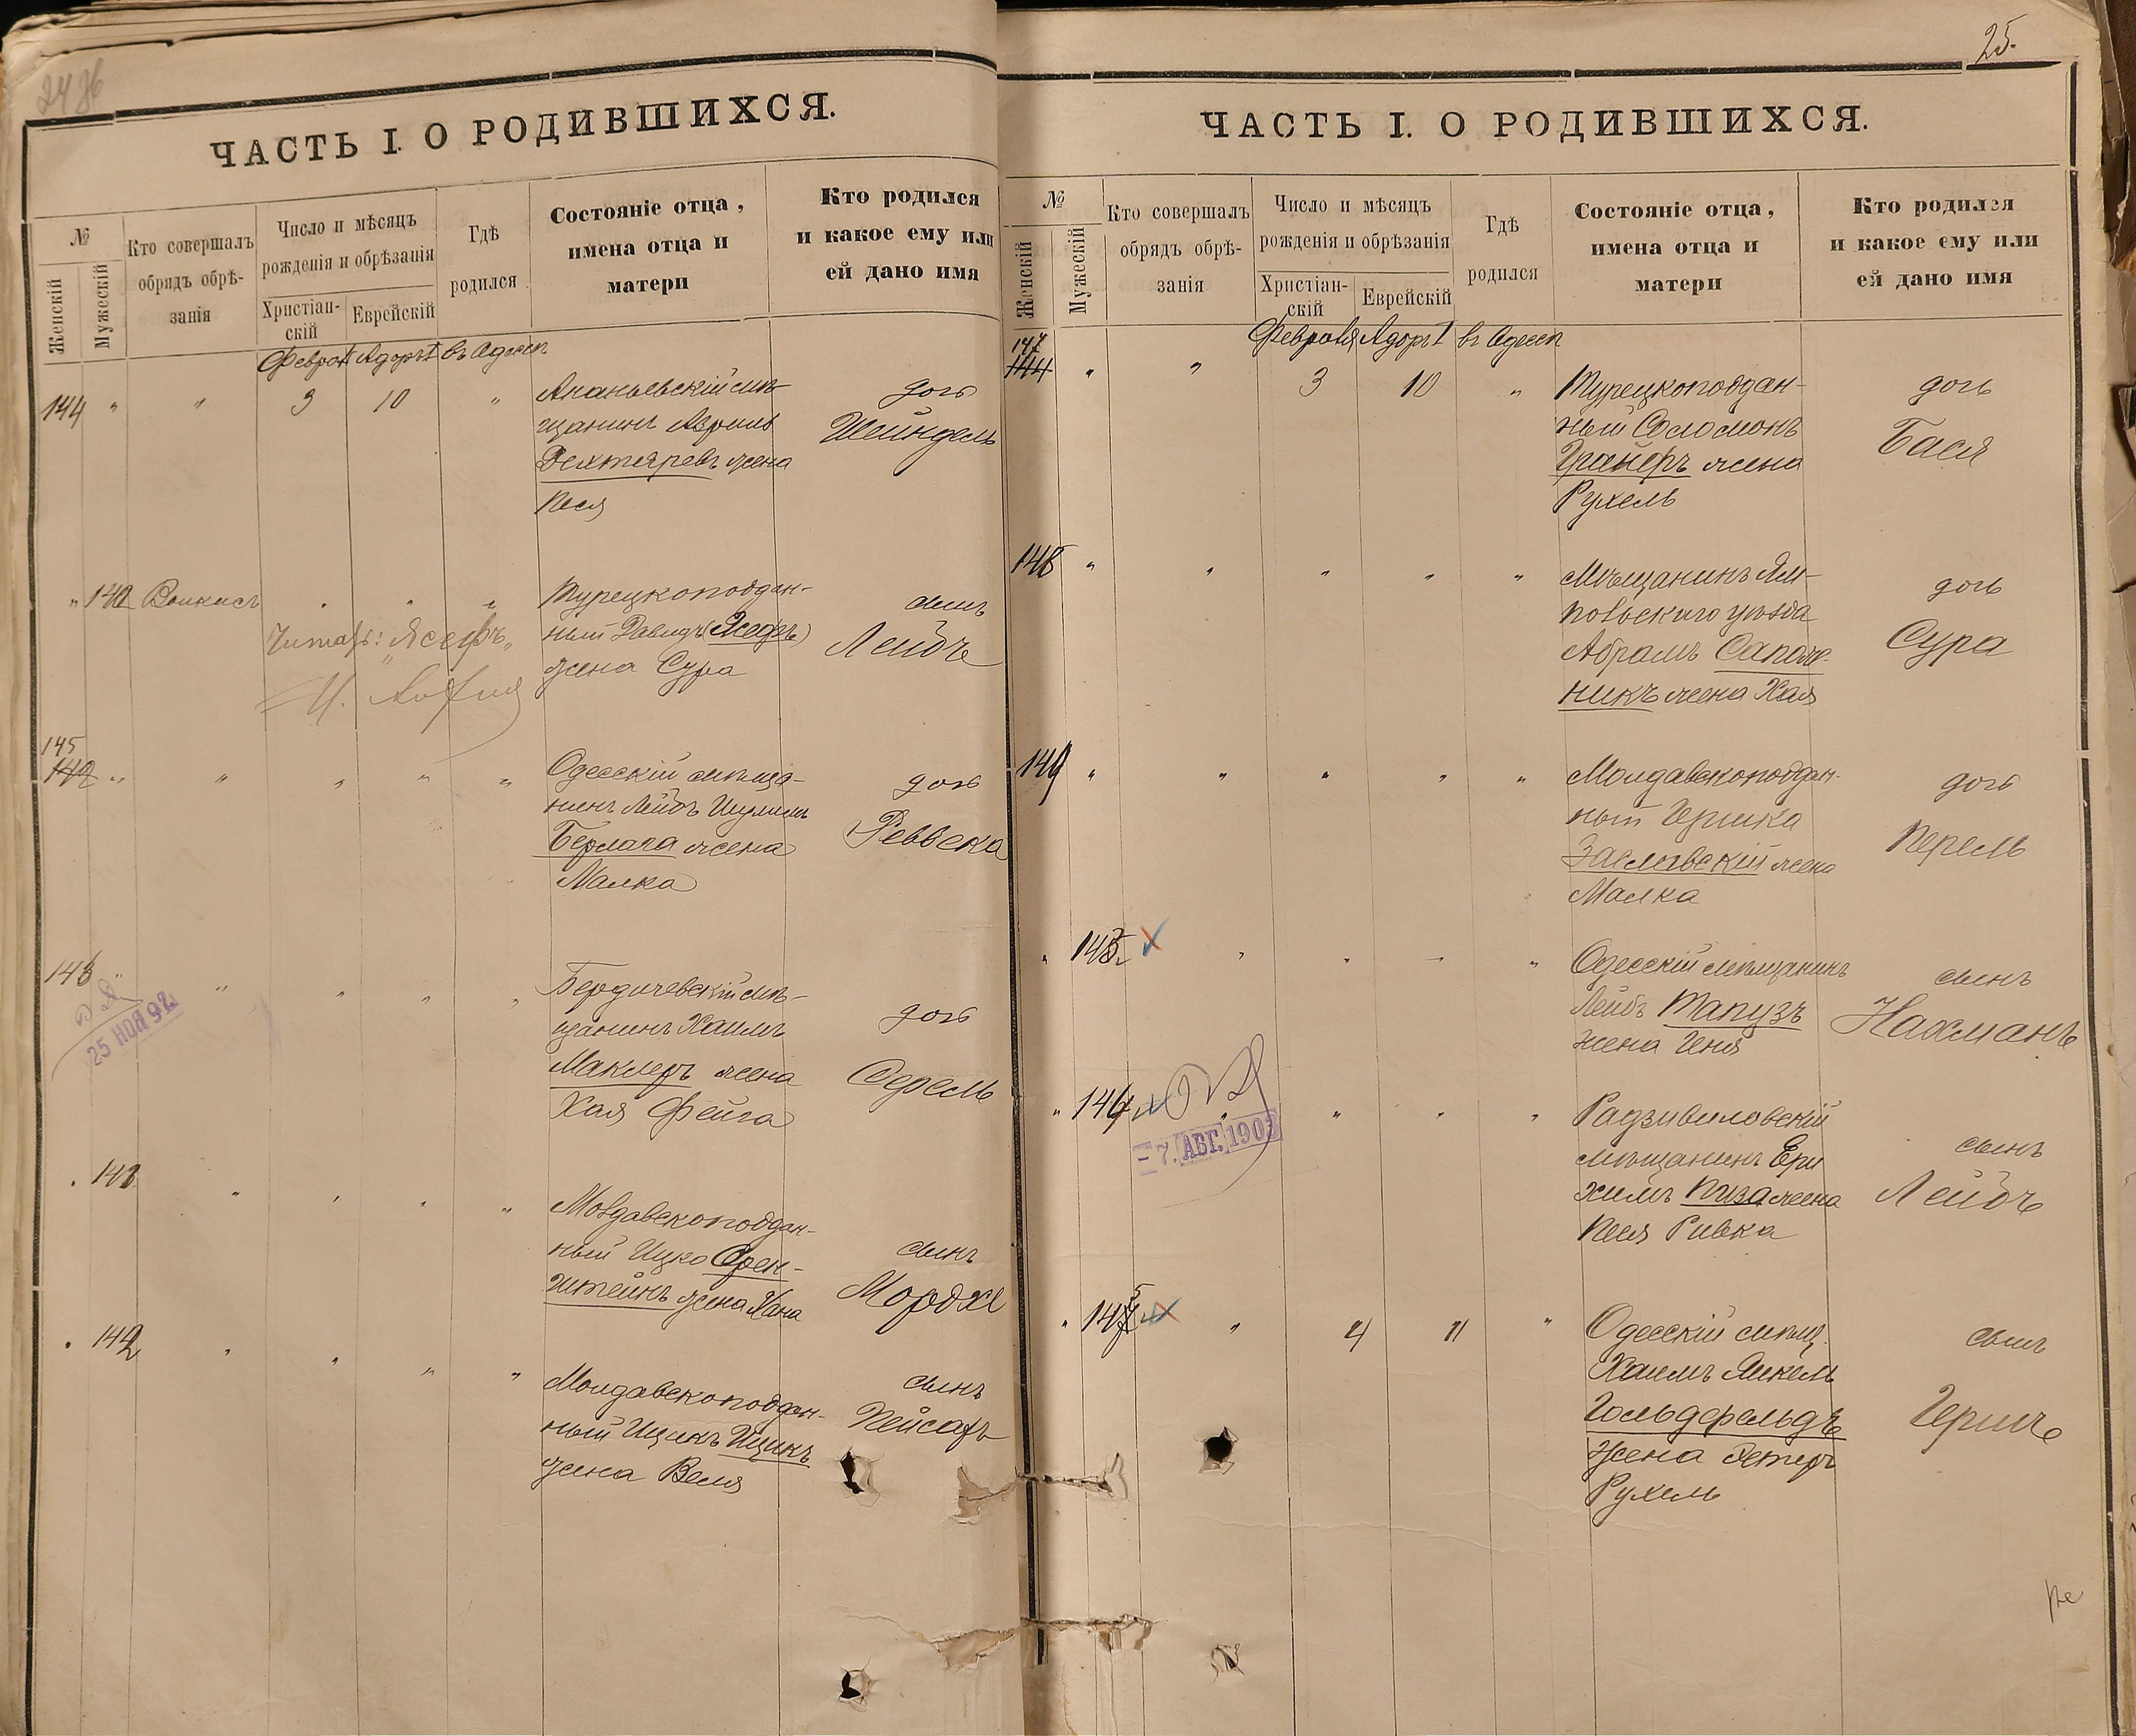 ЧАСТЬ I. О РОДИВШИХСЯ.
№
Женскій
Мужескій
Кто совершалъ
обрядъ обрѣ-
занія
Число и мѣсяцъ
рожденія и обрѣзанія
Христіан-
скій
Еврейскій
Гдѣ
родился
Состояніе отца,
имена отца и
матери
Кто родился
и какое ему или
ей дано имя
Адоръ I въ Одессѣ
144 " " 3 10 "
Ананьевскій мѣ-
щанинъ
Дехтяревъ жена
Песя
дочь
Шейндель
" 140
Турецкоподдан-
ный Давидъ
жена Сура
сынъ
Лейбъ
Читать: "Ясефъ"
145
142 " " " " "
Одесскій мѣща-
нинъ Лейбъ
Берлага жена
Малка
дочь
Реввека
146 " " " " "
25 НОЯ 92
Бердичевскій мѣ-
щанинъ Хаимъ
Маклеръ жена
Хая Фейга
дочь
" 141 " " " "
Молдавскоподдан-
ный Ицко Орен-
штейнъ жена Хана
сынъ
Мордхе
" 142 " " " "
Молдавскоподдан-
ный Ицикъ Ицикъ
жена Веля
сынъ
Пейсахъ
25.
ЧАСТЬ I. О РОДИВШИХСЯ.
№
Женскій
Мужескій
Кто совершалъ
обрядъ обрѣ-
занія
Число и мѣсяцъ
рожденія и обрѣзанія
Христіан-
скій
Еврейскій
Гдѣ
родился
Состояніе отца,
имена отца и
матери
Кто родился
и какое ему или
ей дано имя
Февраля Адоръ I въ Одессѣ
147
144 " " 3 10 "
Турецкоподдан-
ный Соломонъ
жена
Рухель
дочь
Бася
148 " " " " "
Мѣщанинъ Ям-
польскаго уѣзда
Абрамъ Сапож-
никъ жена Хая
дочь
Сура
149 " " " " "
Молдавскоподдан-
ный Гершка
Заславскій жена
Малка
дочь
Перель
" 143 " " " "
Одесскій мѣщанинъ
Лейбъ Тапузъ
жена Геня
сынъ
Нахманъ
" 144 " " " "
7. АВГ. 1903
Радзивиловскій
мѣщанинъ Еру
химъ Пиза жена
Песя Ривка
сынъ
Лейбъ
" 145 " 4 11 "
Одесскій мѣщ.
Хаимъ Янкель
Гольдфельдъ
жена Эстеръ
Рухель
сынъ
Гершъ